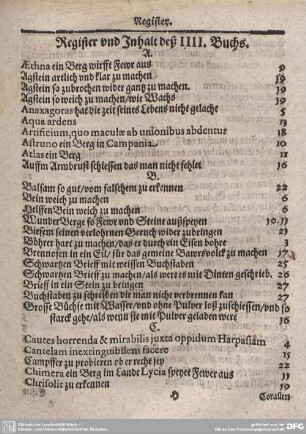 Register.
Register vnd Inhalt deß IIII. Buchs.
A.
Æthna ein Berg wirfft Fewr aus 9
Agstein artlich vnd klar zu machen 19
Agstein so zubrochen wider gantz zu machen. 19
Agstein so weich zu machen/wie Wachs 19
Anaxagoras hat die zeit seines Lebens nicht gelacht 5
Aqua ardens 13
Artificium, quo maculæ ab unionibus abdentur 18
Astruno ein Berg in Campania. 10
Atlas ein Berg 11
Auffm Armbrust schiessen das man nicht fehlet 16
B.
Balsam so gut/vom falschem zu erkennen 22
Bein weich zu machen 6
Helffen Bein weich zu machen 6
Wunder Berge so Fewr vnd Steine außspeyen 10.11
Biesem seinen verlohrnen Geruch wider zubringen 23
Böhrer hart zu machen/das er durch ein Eisen bohre 3
Brennofen in ein Eil/ für das gemeine Bawrsvolck zu machen 17
Schwartzen Brieff mit weissen Buchstaben 25
Schwartzen Brieff zu machen/als wer es mit Dinten geschrieb. 26
Brieff in ein Stein zu bringen 27
Buchstaben zu schreiben die man nicht verbrennen kan 27
Grosse Büchse mit Wasser/vnd ohne Pulver loß zuschiessen/vnd so
starck gehe/als wenn sie mit Pulver geladen were 16
C.
Cautes horrenda & mirabilis juxta oppidum Harpasam 4
Cantelam inextinguibilem facere 15
Campffer zu probieren ob er recht sey 22
Chimera ein Berg im Lande Lycia speyet Fewer aus 11
Chrisolit zu erkennen 19
Corallen